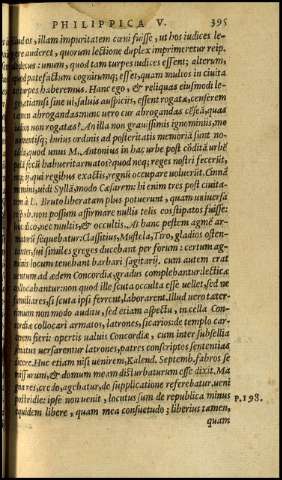 PHILIPPICA V. 395
iudes, illam impuritatem cœni fuisse, ut hos iudices le-
gere auderet, quorum lectione duplex imprimeretur reip.
dedecus: unum, quod tam turpes iudices essent; alterum,
quod patefactum cognitumq; esset, quam multos in ciuita
te turpes haberemus. Hanc ego, & reliquas eiusmodi le-
ges, etiamsi sine ui, saluis auspicijs, essent rogatæ, censerem
tamen abrogandas: nunc uero cur abrogandas céseá, quas
iudico non rogatas? An illa non grauissimis ignominijs, mo
numentisq; huius ordinis ad posteritatis memoriã sunt no-
tanda, quod unus M. Antonius in hac urbe post cõditã urbẽ
palã secũ habuerit armatos? quod neq; reges nostri fecerũt,
neq; ij, qui regibus exactis, regnũ occupare uoluerũt. Cinnã
memini, uidi Syllã, modo Cæsarem: hi enim tres post ciuita-
tem à L. Bruto liberatam plus potuerunt, quam uniuersa
resp. non possum affirmare nullis telis eos stipatos fuisse:
hoc dico, nec multis, & occultis. At hanc pestem agmẽ ar-
matorũ sequebatur: Classitius, Mustela, Tiro, gladios osten-
tantes, sui similes greges ducebant per forum: certum ag-
minis locum tenebant barbari sagittarij. cum autem erat
uentum ad ædem Concordiæ, gradus complebantur: lecticæ
collocabantur: non quod ille scuta occulta esse uellet, sed ne
familiares, si scuta ipsi ferrent, laborarent. Illud uero teter-
rimum non modo auditu, sed etiam aspectu, in cella Con-
cordiæ collocari armatos, latrones, sicarios: de templo car-
cerem fieri: opertis ualuis Concordiæ, cum inter subsellia
senatus uersarentur latrones, patres conscriptos sententias
dicere. Huc etiam nisi uenirem, Kalend. Septemb. fabros se
missurum, & domum meam disturbaturum esse dixit. Ma
gna res, credo, agebatur, de supplicatione referebat. ueni
postridie: ipse non uenit, locutus sum de republica minus P.198.
equidem libere, quam mea consuetudo; liberius tamen,
quam